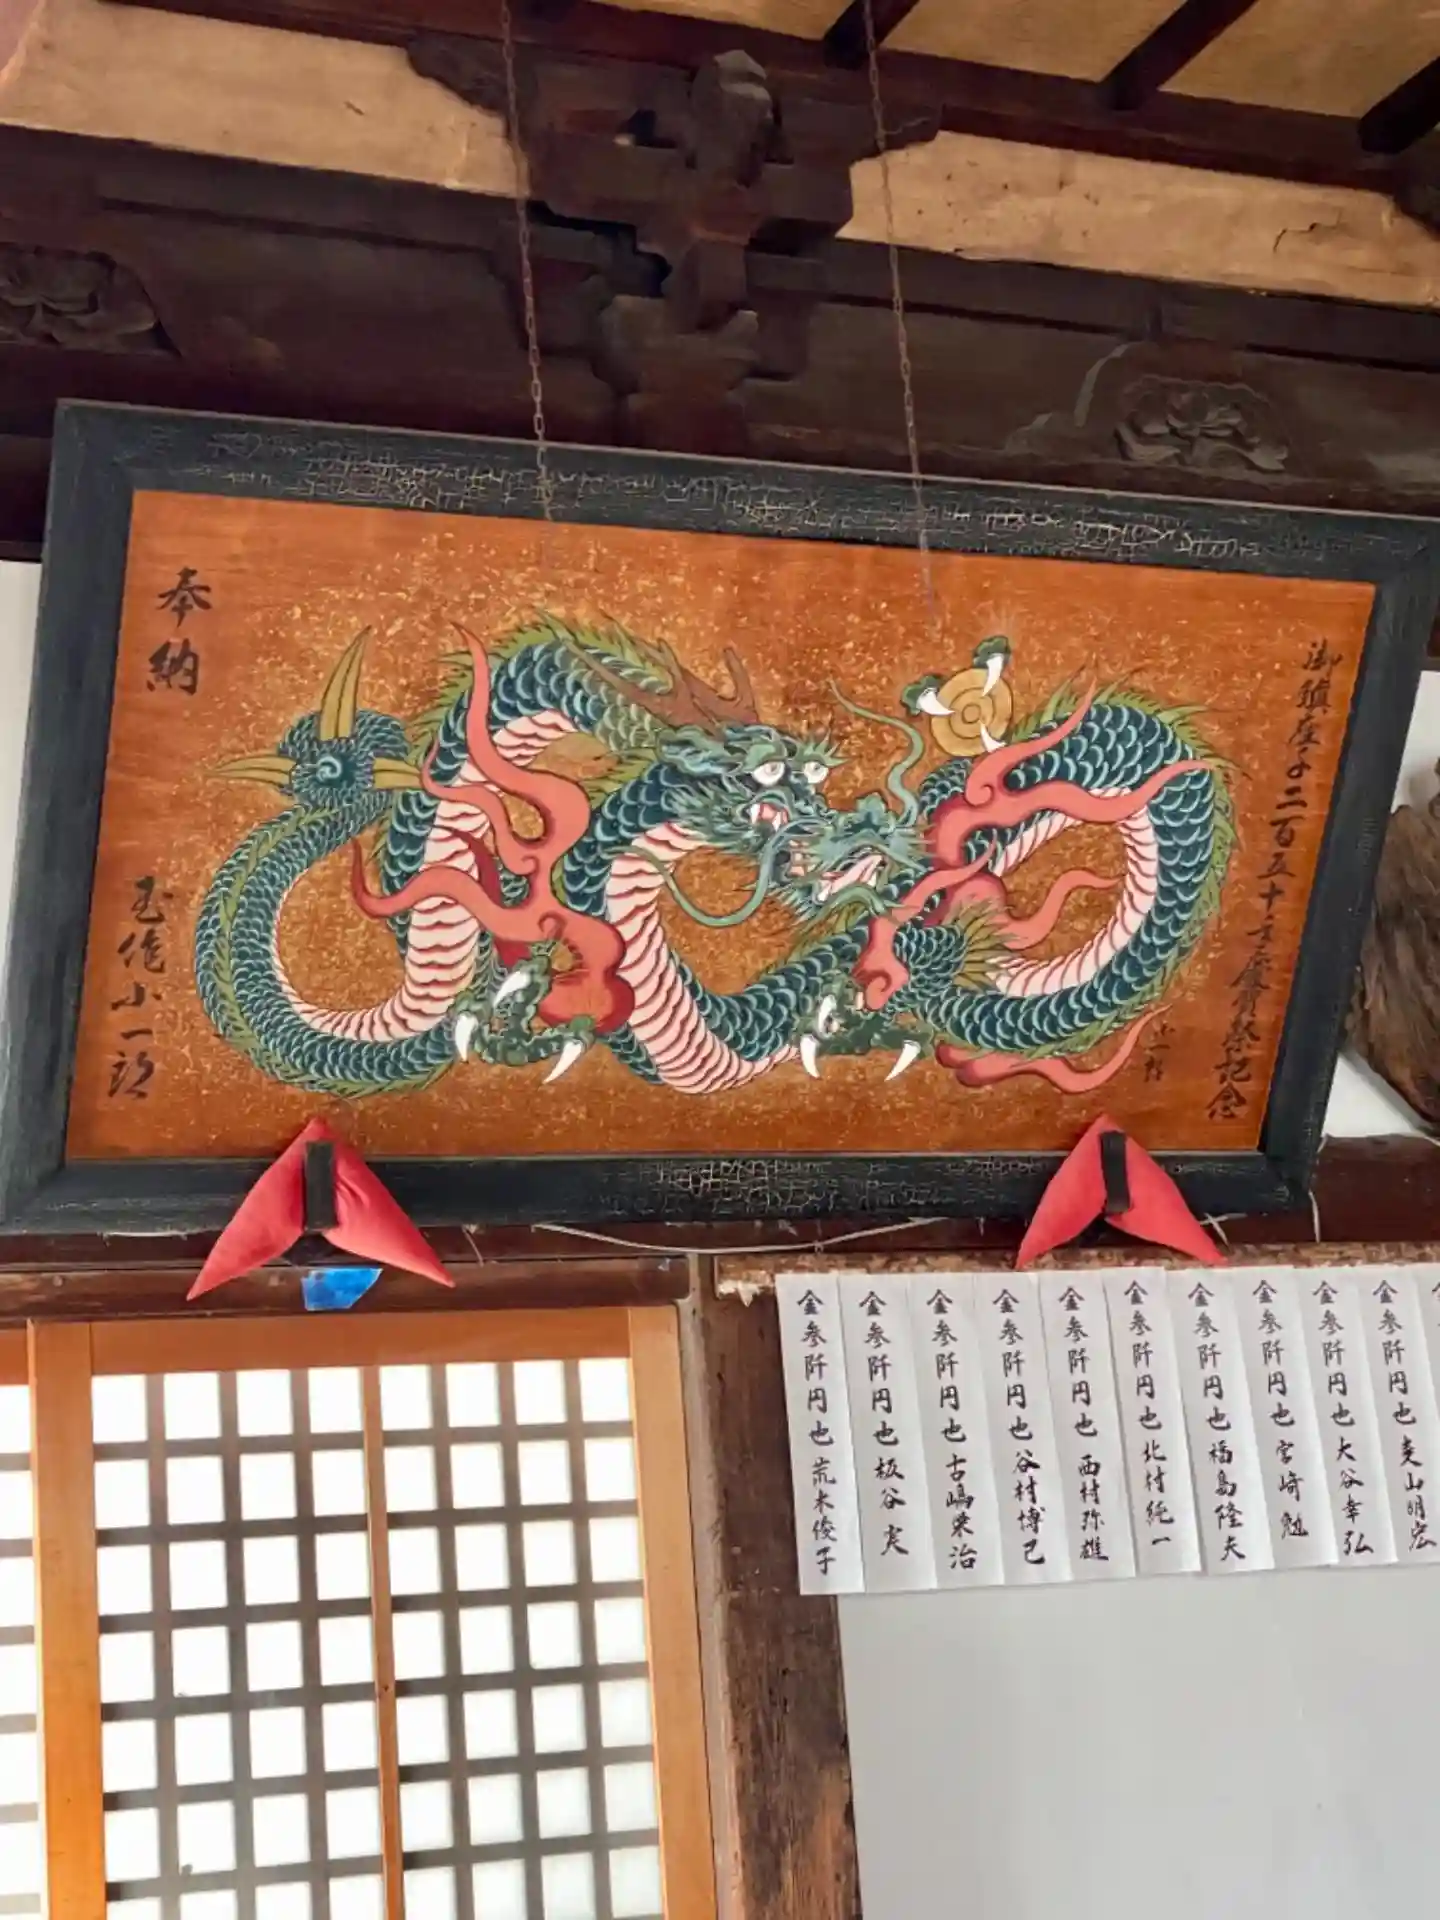 奉納
玉作小一郎
御鎮座千二百五十年慶賀祭記念
小一郎
金参阡円也 荒木俊子
金参阡円也 板谷 実
金参阡円也 古嶋栄治
金参阡円也 谷村博己
金参阡円也 西村弥雄
金参阡円也 北村純一
金参阡円也 福島隆夫
金参阡円也 宮崎 勉
金参阡円也 大谷幸弘
金参阡円也 麦山明宏